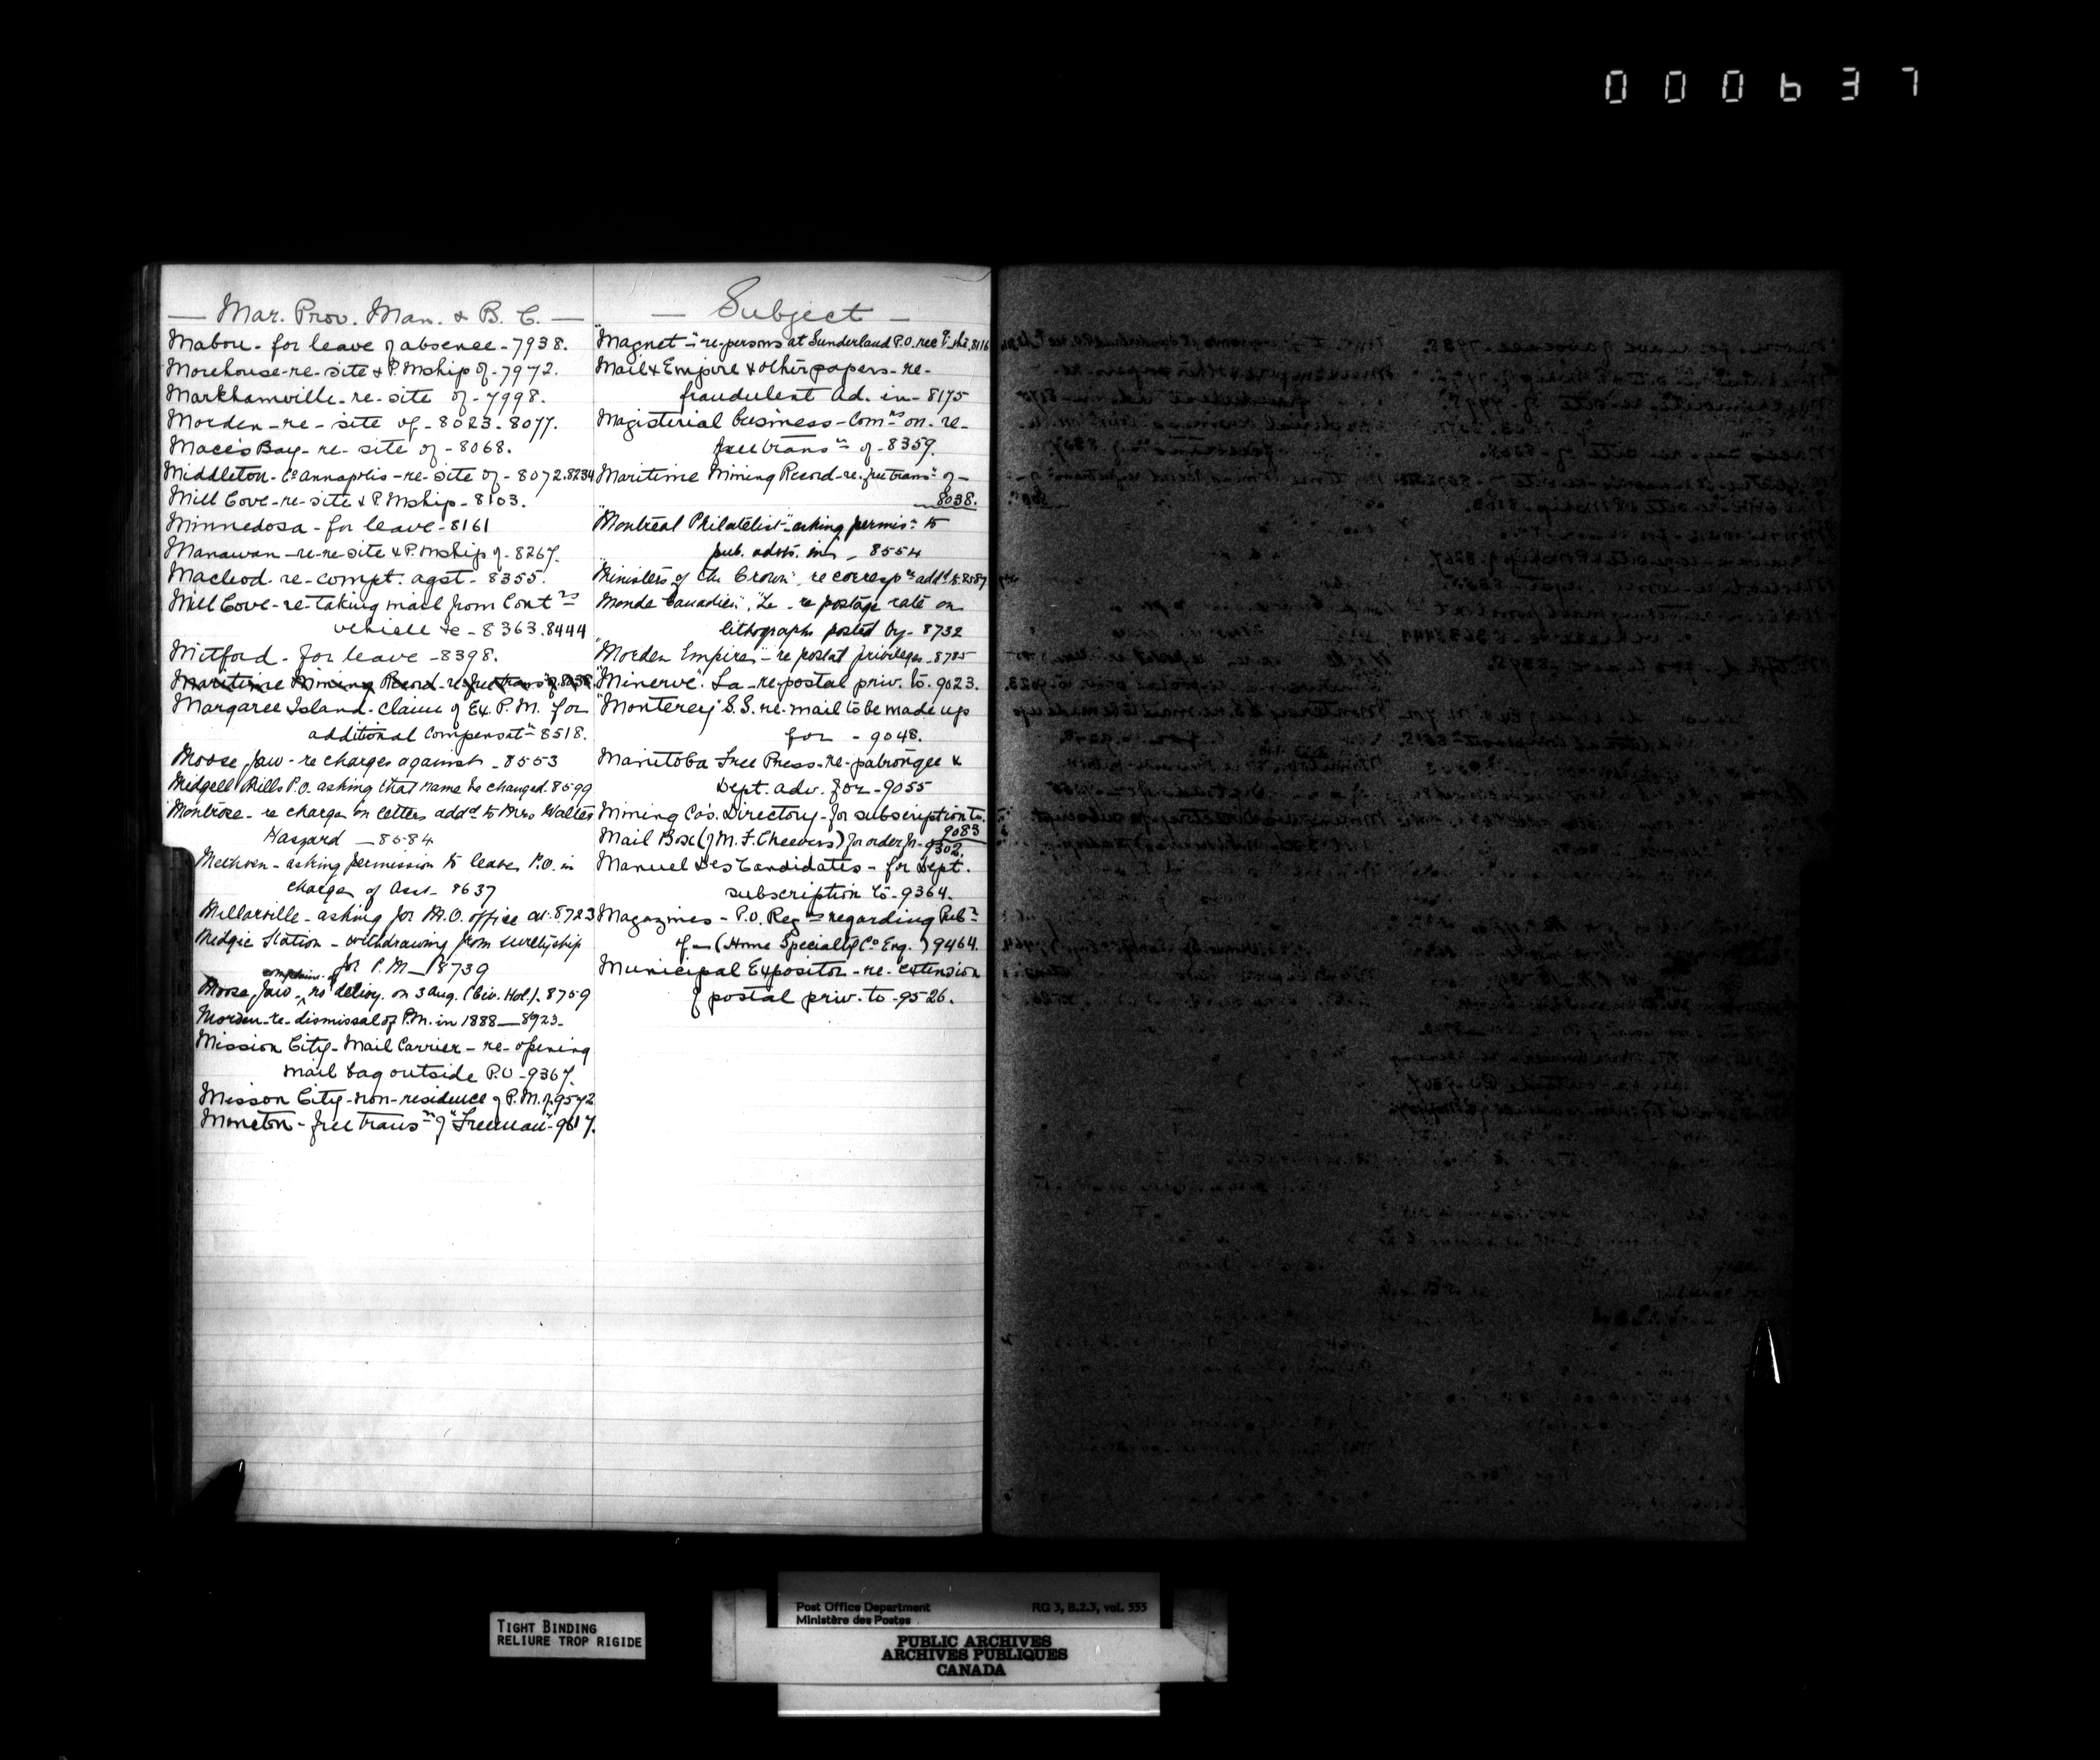 000637
— Mar. Prov. Man. & B. C. —
Mabou - for leave of absence - 7938.
Morehouse - re - site & P.Mship of - 7972.
Markhamville - re - site of - 7998.
Morden - re - site of - 8023. 8077.
Mace's Bay - re - site of - 8068.
Middleton - Co Annapolis - re - site of - 8072. 8234
Mill Cove - re - site & P.Mship - 8103.
Minnedosa - for leave - 8161
Manawan - re - re - site & P.Mship of - 8267.
Macleod - re - compt. agst - 8355.
Mill Cove - re - taking mail from Contrs
vehicle &c - 8363. 8444
Mitford - for leave - 8398.
Maritime Mining Record - re free trans of. 8038
Margaree Island - claim of Ex. P. M. for
additional compensatn 8518.
Moose Jaw - re charges against - 8553
Midgell Mills P.O. asking that name be changed. 8599
Montrose - re charge on letters addd to Mrs Walter
Haszard — 8584
Methven - asking permission to leave P.O. in
charge of Asst - 8637
Millarville - asking for M.O. office at. 8723
Midgic Station - withdrawing from suretyship
for P.M — 8739
Moose Jaw - complains of no delivy. on 3 Aug. (Civ. Hol.). 8759
Morden - re - dismissal of P.M. in 1888 — 8923 -
Mission City - Mail Carrier - re - opening
mail bag outside P.O - 9367.
Misson City - non - residence of P.M. of. 9572
Moncton - free transn of "Freeman" - 9617.
— Subject —
"Magnet" - re - persons at Sunderland P.O. rec'g the. 8116
Mail & Empire & other papers - re -
fraudulent Ad. in - 8175
Magisterial business - Comns on - re -
free transn of - 8359.
Maritime Mining Record - re - free transn of -
8038.
"Montreal Philatelist" asking permisn to
pub. advts. in - 8554
Ministers of the Crown, re correspce addd to. 8587
Monde Canadien", "Le - re postage rate on
lithographs posted by - 8732
"Morden Empire" - re postal privileges - 8785
"Minerve". La - re - postal priv. to - 9023.
"Monterey" S.S. re - mail to be made up
for - 9048.
Manitoba Free Press - re - patronage &
Dept. adv. for - 9055
Mining Co's. Directory - for subscription to.
9083
Mail Box (of M. F. Cheevers) for order for - 9302.
Manuel des Candidates - for Dept.
subscription to - 9364.
Magazines - P.O. Regns regarding Pubn
of — (Home Specialty Co Enq.) 9464.
Municipal Expositor - re - extension
of postal priv. to - 9526.
TIGHT BINDING
RELIURE TROP RIGIDE
Post Office Department RG 3, B.2.3, vol. 555
Ministère des Postes
PUBLIC ARCHIVES
ARCHIVES PUBLIQUES
CANADA